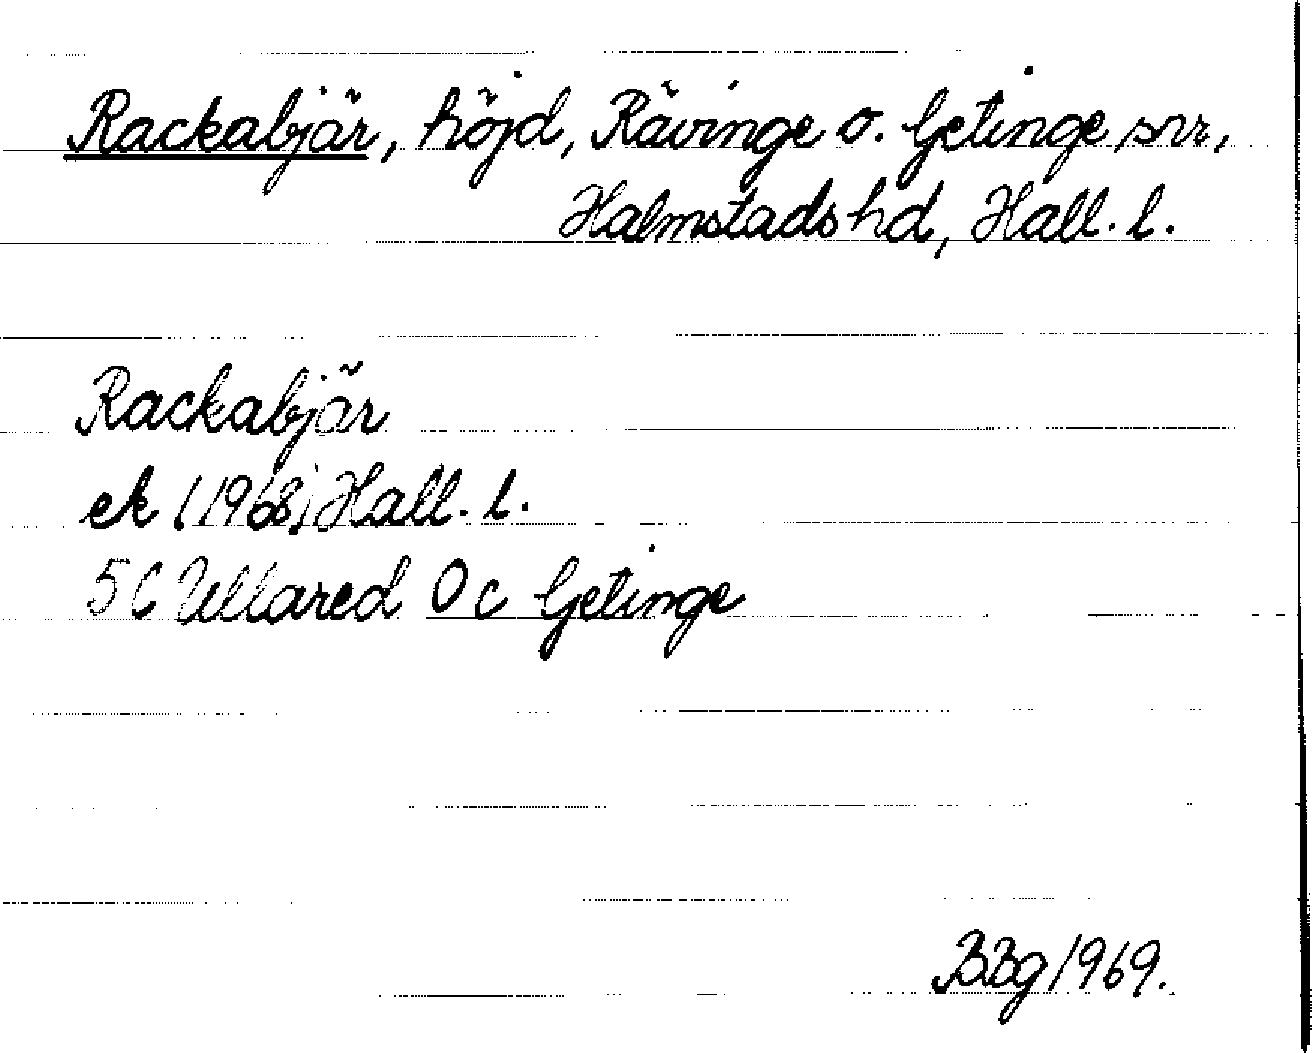 Rackabjär, höjd, Rävinge o. Getinge snr,
Halmstads hd, Hall. l.
Rackabjär
ek (1968) Hall. l.
5C Ullared 0c Getinge
BBg 1969.